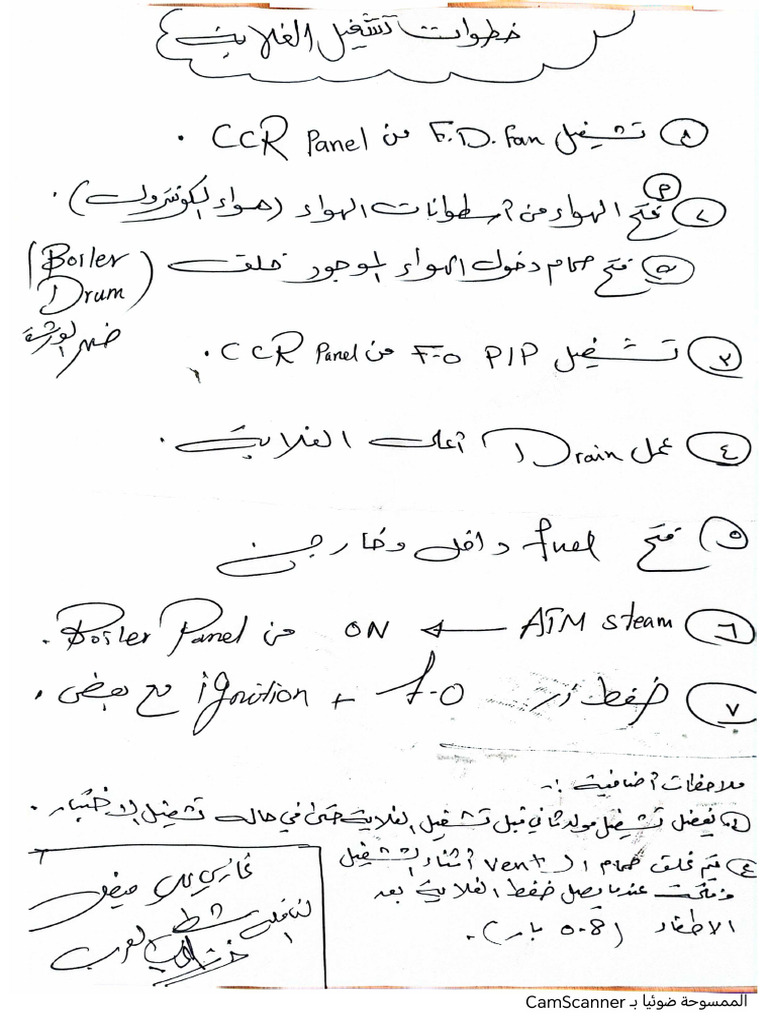 خطوات تشغيل الغلاية
١ تشغيل F.D. fan من CCR Panel .
٢ م فتح الهواء من اسطوانات الهواء (هواء الكونترول) .
ه فتح صمام دخول الهواء الموجود خلف (Boiler Drum)
ظهر الورشة
٣ تشغيل F-O P/P من CCR Panel .
٤ عمل Drain أعلى الغلاية .
٥ فتح fuel داخل وخارج
٦ ATM steam ← ON من Boiler Panel .
٧ ضغط زر F-O + ignition مع بعض .
ملاحظات اضافية :-
١. يفضل تشغيل مولد ثاني قبل تشغيل الغلاية حتى في حالة تشغيل الاختبار .
٤ يتم غلق صمام الـ vent أثناء التشغيل
وفتحه عندما يصل ضغط الغلاية بعد
الاطفاء (0.8 بار) .
غازي
الناقلة شط العرب
الممسوحة ضوئيا بـ CamScanner